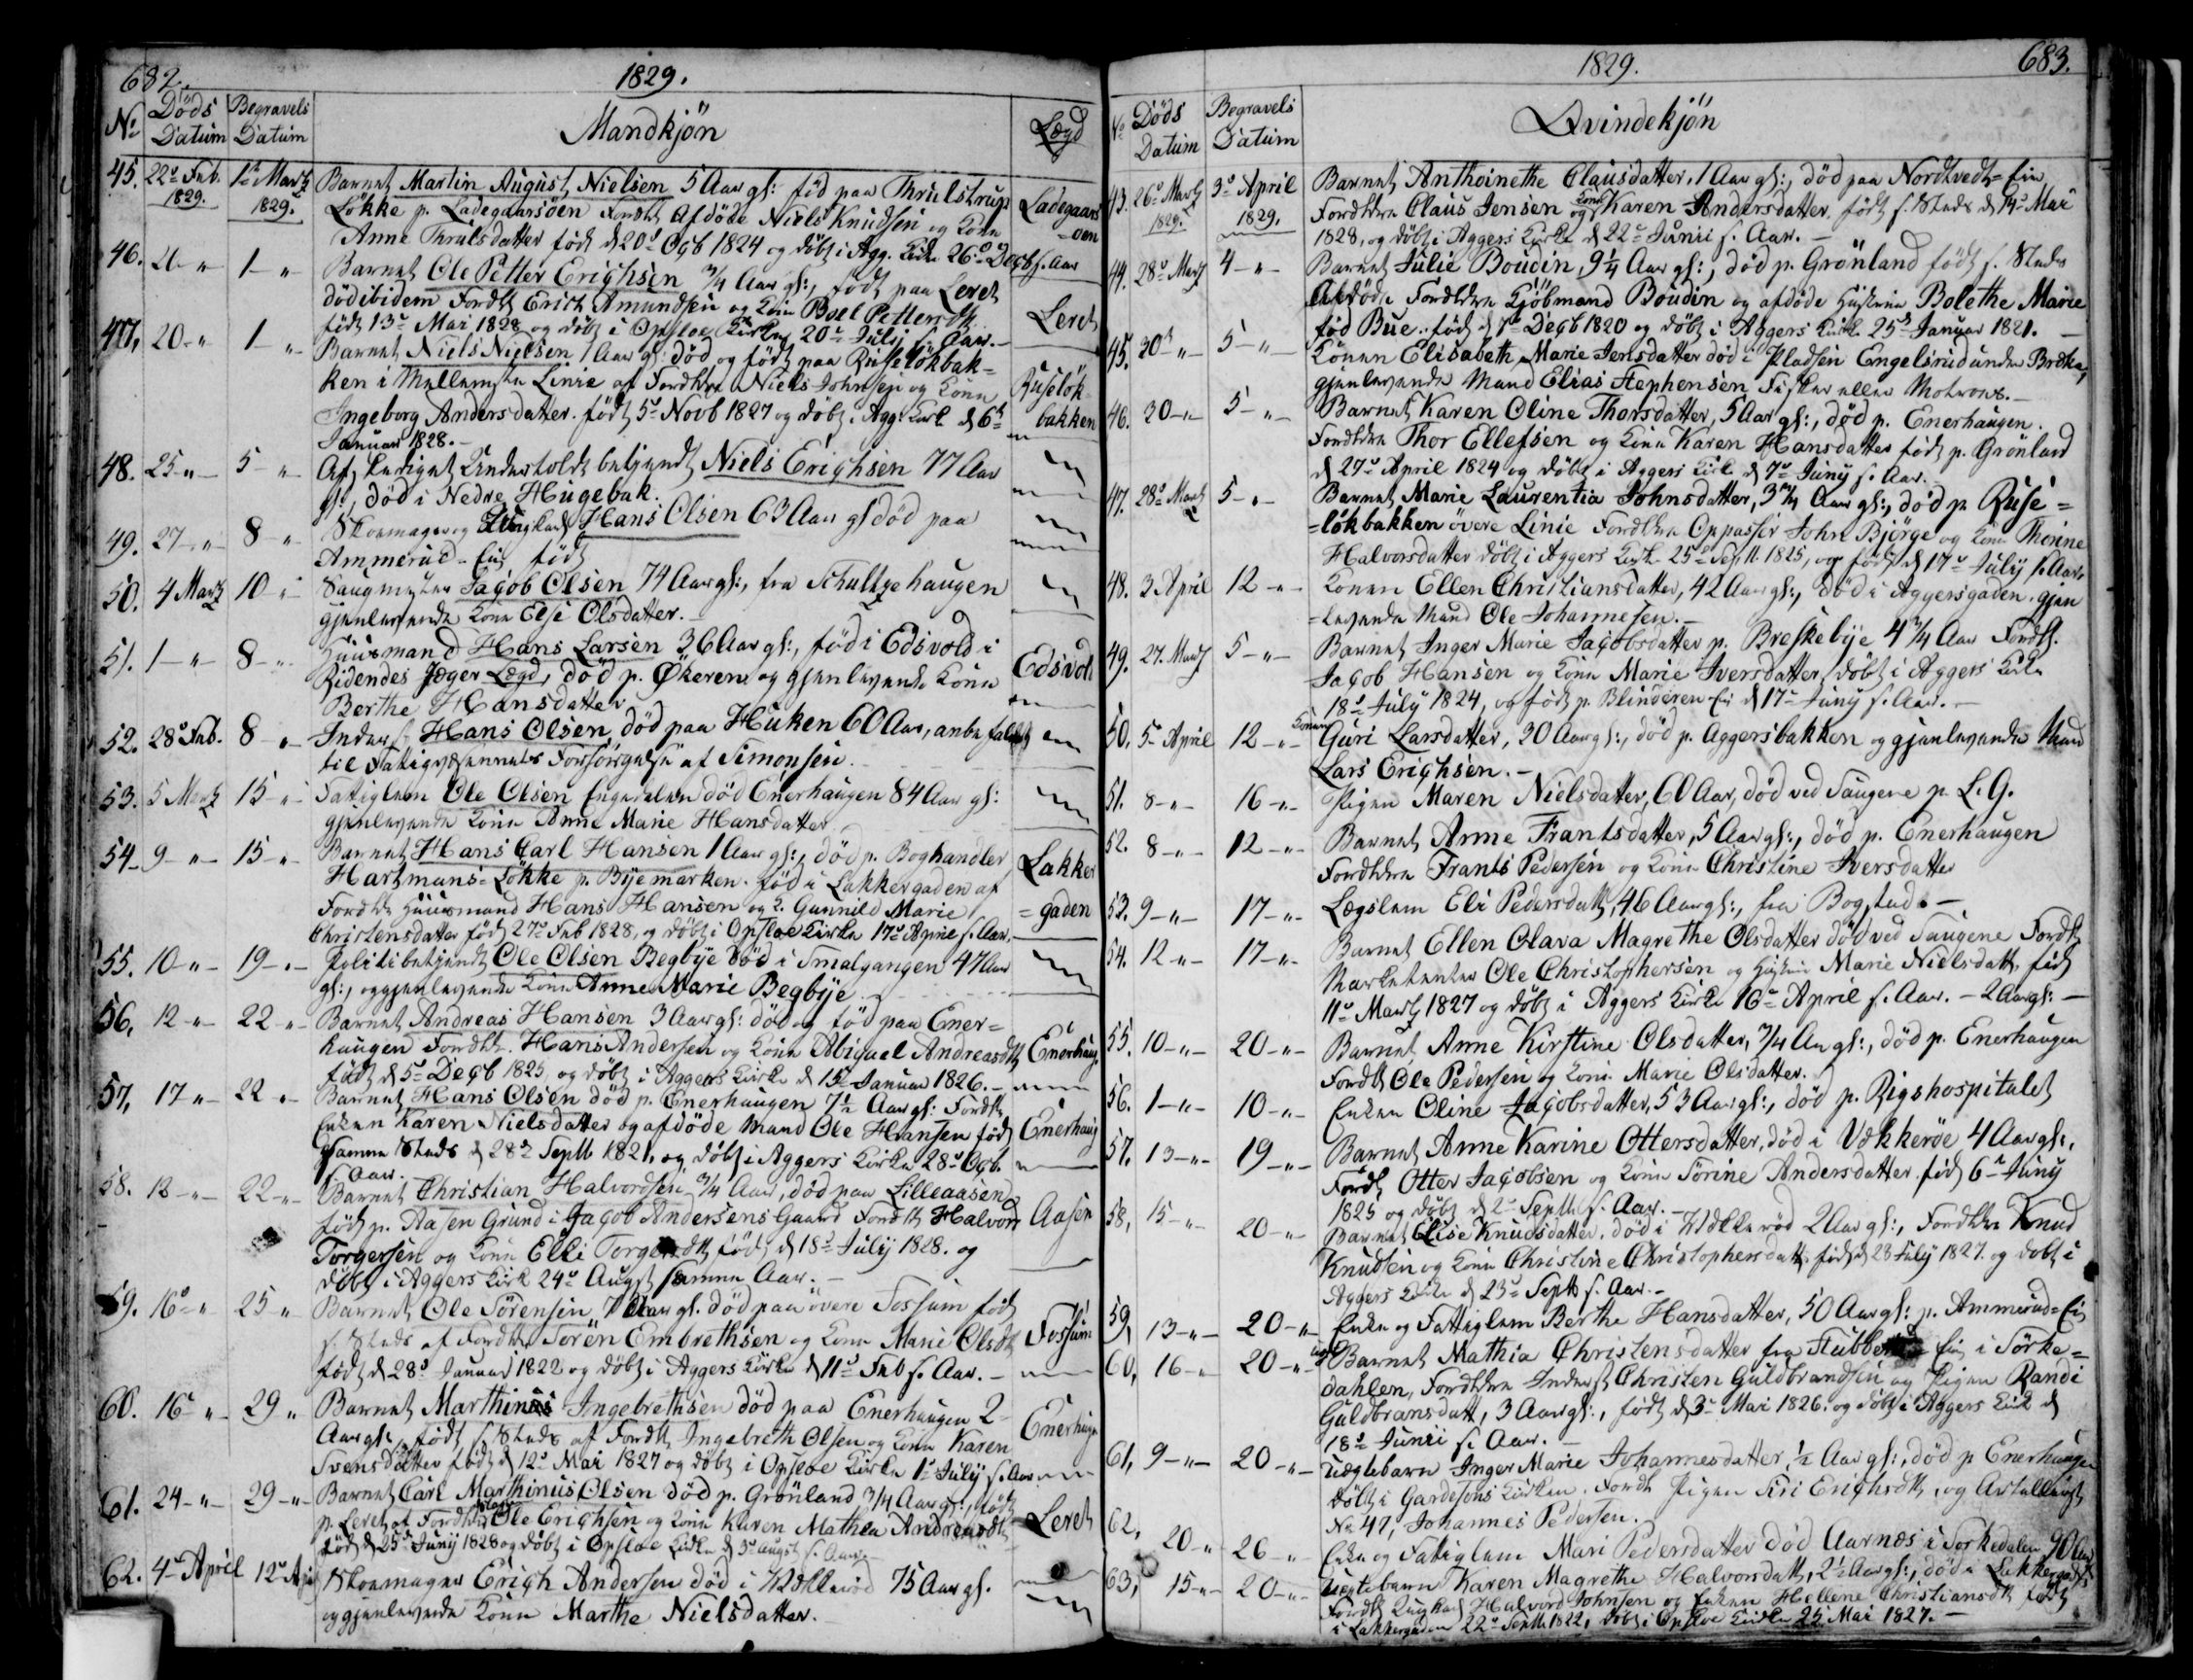 682.
1829.
No
Döds Datum
Begravels Datum
Mandkjön
Lægd
45. 22de Feb. 1829. 1te Martz 1829. Barnet Martin August Nielsen 5 Aar gl: fød paa Thrulstrup
Løkke p. Ladegaarsöen Forældr Afdøde Niels Knudsen og Kone
Anne Thrulsdatter født d 20de Octb 1824 og døbt i Agg. Kirke 26de Decb s. Aar
Ladegaars=oen
46. 21 - " - 1 - " Barnet Ole Petter Erichsen 3/4 Aar gl:, født paa Leret
död ibidem Fordlr Erich Amundsen og Kone Boel Pettersdtr
født 13de Mai 1828 og døbt i Opsloe Kirke 20de Julj s. Aar.-
Leret
47. 20 - " 1 - " Barnet Niels Nielsen 1 Aar gl: död og født paa Ruseløkbak=
ken i Mellemste Linie af Fordldre Niels Johnsen og Kone
Ingeborg Andersdatter. født 5te Novb 1827 og døbt i Agg: Kirke d 6te
Januar 1828.-
Ruseløkbakken
48. 25 - " 5 - " Afskediget Undertoldbetjendt Niels Erichsen 77 Aar
gl:, död i Nedre Hugebak.
49. 27 - " - 8 - " Skomager og Hans Olsen 63 Aar gl död paa
Ammerud-Eie født
50. 4 Martz 10 - " Saugmester Jacob Olsen 74 Aar gl:, fra Schultzehaugen
gjenlevende Kone Else Olsdatter.-
51. 1 - " 8 - " Huusmand Hans Larsen 36 Aar gl:, fød i Edsvold i
Ridendes Jæger Lægd, död p. Økeren og gjenlevende Kone
Berthe Hansdatter
Edsvold
52. 28de Feb. 8 - " Inderst Hans Olsen, död paa Huken 60 Aar, anbefalet
til Fatigvæsenets Forsörgelse af Simonsen.
53. 5 Martz 15 - " Fatiglem Ole Olsen Engedalen död Enerhaugen 84 Aar gl:
gjenlevende Kone Anne Marie Hansdatter
54. 9 - " - 15 - " Barnet Hans Carl Hansen 1 Aar gl:, död p. Boghandler
Hartmans=Løkke p. Byemarken. fød i Lakkergaden af
Fordldr Huusmand Hans Hansen og K. Gunnild Marie
Christensdatter født 27de Feb 1828, og døbt i Opsloe Kirke 17de April s. Aar.
Lakker=gaden
55. 10 - " - 19 - " Politibetjendt Ole Olsen Begbye död i Smalgangen 47 Aar
gl:, og gjenlevende Kone Anne Marie Begbye
56. 12 - " - 22 - " Barnet Andreas Hansen 3 Aar gl: död og fød paa Ener=
haugen Fordldr. Hans Andersen og Kone Abigael Andreasdtr
født d 5te Decb 1825, og døbt i Aggers Kirke d 15de Januar 1826.-
Enerhaug
57. 17 - " - 22 - " Barnet Hans Olsen död p. Enerhaugen 7½ Aar gl: Fordldr
Enken Karen Nielsdatter og afdöde Mand Ole Hansen fød
samme Steds d 28de Septb 1821, og døbt i Aggers Kirke 28de Octb
s. Aar.
Enerhaug
58. 12 - " - 22 - " Barnet Christian Halvordsen 3/4 Aar, död paa Lilleaasen
født p. Aasen Grund i Jacob Andersens Gaard Fordldr Halvor
Torgersen og Kone Elli født d 18de July 1828. og
døbt i Aggers Kirke 24de Augst samme Aar.-
Aasen
59. 16de " 25 " Barnet Ole Sörensen 7 Aar gl. död paa övere Fossum fød
s. Steds af Fordldr Sören Embrethsen og Kone Marie Olsdtr
født d 28de Januar 1822 og døbt i Aggers Kirke d 11te Feb s. Aar.-
Fossum
60. 16de " 29 " Barnet Marthines Ingebrethsen död paa Enerhaugen 2
Aar gl: født s. Steds af Fordldr Ingebreth Olsen og Kone Karen
Svensdatter født d 12te Mai 1827 og døbt i Opsloe Kirke 1te July s. Aar
Enerhaugn
61. 24 - " - 29 - " Barnet Carl Marthinus Olsen död p. Grönland 3/4 Aar gl:, født
p. Leret af Fordldr Ole Erichsen og Kone Karen Mathea Andreasdtr
fød d 25de Juny 1828 og døbt i Opsloe Kirke d 3de August s. Aar
Leret
62. 4de April 12te Apr Skomager Erich Andersen död i Wækkeröd 75 Aar gl.
og gjenlevende Kone Marthe Nielsdatter.
1829.
683.
No
Döds Datum
Begravels Datum
Qvindekjön
43. 26de Martz 1829. 3de April 1829. Barnet Anthoinethe Clausdatter, 1 Aar gl:, død paa Nordtvedt=Eie
Fordldre Claus Jensen og Kone Karen Andersdatter, født s. Steds d 14de Mai
1828, og døbt i Aggers Kirke d 22de Junii s. Aar.-
44. 28de Martz 4 - " - Barnet Julie Boudin, 9¼ Aar gl:, død p. Grönland født s. Steds
Afdöde Fordldre Kjöbmand Boudin og afdöde Hustrue Bolethe Marie
fød Bue. født d 1te Decb 1820 og døbt i Aggers Kirke 25de Januar 1821.-
45. 30te - " - 5 - " - Konen Elisabeth Marie Jensdatter död i Pladsen Engelsrud under
gjenlevende Mand Elias Stephensen Fisker eller Matros.-
46. 30 - " - 5 - " - Barnet Karen Oline Thorsdatter, 5 Aar gl:, død p. Enerhaugen.
Fordldre Thor Ellefsen og Kone Karen Hansdatter født p. Grönland
d 27de April 1824 og døbt i Aggers Kirke d 7de Juny s. Aar.
47. 28de Martz 5 - " - Barnet Marie Laurentia Johnsdatter, 3¾ Aar gl:, död p. Ruse=
=løkbakken övere Linie Fordldre Oppasser John Bjørge og Kone Thorine
Halvorsdatter døbt i Aggers Kirke 25de Septb. 1825, og født d 17de July s. Aar.
48. 3 April 12 - " - Konen Ellen Christiansdatter, 42 Aar gl:, död i Aggersgaden. gjen
=levende Mand Ole Johannesen.-
49. 27. Martz 5 - " - Barnet Inger Marie Jacobsdatter p. Breskebye 4¾ Aar Fordlr.
Jacob Hansen og Kone Marie Iversdatter, døbt i Aggers Kirke
18de July 1824, og født p. Blinderen-Eie d 17de Juny s. Aar.-
50. 5 April 12 - " - Konen Guri Larsdatter, 30 Aar gl:, død p. Aggersbakken og gjenlevende Mand
Lars Erichsen.-
51. 8 - " - 16 - " - Pigen Maren Nielsdatter, 60 Aar, död ved Saugene p. L. G.
52. 8 - " - 12 - " - Barnet Anne Frantsdatter, 5 Aar gl:, död p. Enerhaugen
Fordldre Frants Pedersen og Kone Christine Iversdatter
53. 9 - " - 17 - " - Lægslem Eli Pedersdatt, 46 Aar gl:, fra Bogstad.-
54. 12 - " - 17 - " - Barnet Ellen Olava Magrethe Olsdatter död ved Saugene Fordlr
Marketenter Ole Christophersen og Hustrue Marie Nielsdatt, fød
11te Martz 1827 og døbt i Aggers Kirke 16de April s. Aar.- 2 Aar gl:-
55. 10 - " - 20 - " - Barnet Anne Kirstine Olsdatter, 3/4 Aar gl:, død p. Enerhaugen
Fordlr Ole Pedersen og Kone Marie Olsdatter.
56. 1 - " - 10 - " - Enken Oline Jacobsdatter, 53 Aar gl:, död p. Rigshospitalet
57. 13 - " - 19 - " - Barnet Anne Karine Ottersdatter, död i Vækkeröe 4 Aar gl:,
Fordlr Otter Jacobsen og Kone Sörine Andersdatter født 6te Juny
1825 og døbt d 2de Septb s. Aar.-
58. 15 - " - 20 - " - Barnet Elise Knudsdatter. død i Wækkeröd 2 Aar gl:, Fordldre Knud
Knudsen og Kone Christine Christophersdatt, født d 28 July 1827. og døbt i
Aggers Kirke d 23de Septb s. Aar.-
59, 13 - " - 20 - " - Enke og Fattiglem Berthe Hansdatter, 50 Aar gl: p. Ammerud=Eie
60, 16 - " - 20 - " - Barnet Mathia Christensdatter fra Eie i Sörke=
dahlen, Fordldre Inderst Christen Guldbrandsen og Pigen Randi
Guldbransdatt, 3 Aar gl:, født d 3de Mai 1826. og døbt i Aggers Kirke d
18de Junii s. Aar.-
61, 9 - " - 20 - " - Uægtebarn Inger Marie Johannesdatter, ½ Aar gl:, död p Enerhaugen
døbt i Garnisons Kirken. Fordlr Pigen Siri Erichsdtr, og Artellerist
No 47, Johannes Pedersen.
62, 20 - " 26 - " Enke og Fatiglem Mari Pedersdatter död Aarnæs i Sorkedalen 90 Aar
63, 15 - " - 20 - " - Uægtebarn Karen Magrethe Halvorsdatt, 2½ Aar gl:, död i Lakkergaden
Fordlr Halvord Johnsen og Enken Hellene Christiansdtr født
i Lakkergaden 22de Septb 1822, døbt i Opsloe Kirke 25 Mai 1827.-